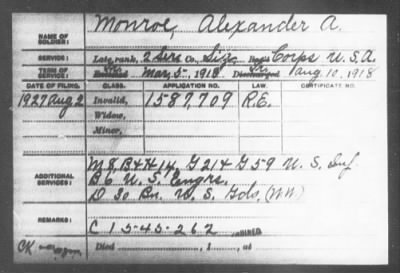 NAME OF SOLDIER: Monroe, Alexander A.
SERVICE: Late rank, 2 Co., Regt Corps U.S.A.
TERM OF SERVICE: Enlisted Mar. 5, 1918 Discharged Aug 10, 1918
DATE OF FILING. CLASS. APPLICATION NO. LAW. CERTIFICATE NO.
1927 Aug 2 Invalid, 1587,709 R.E.
Widow,
Minor,
ADDITIONAL SERVICES: M 8, B & H 14, G 214 G 59 U.S. Inf.
B 6 U.S. Engrs.
D 30 Bn. U.S. Gds. (WW)
REMARKS: C 1-545-262
Died , 1 , at